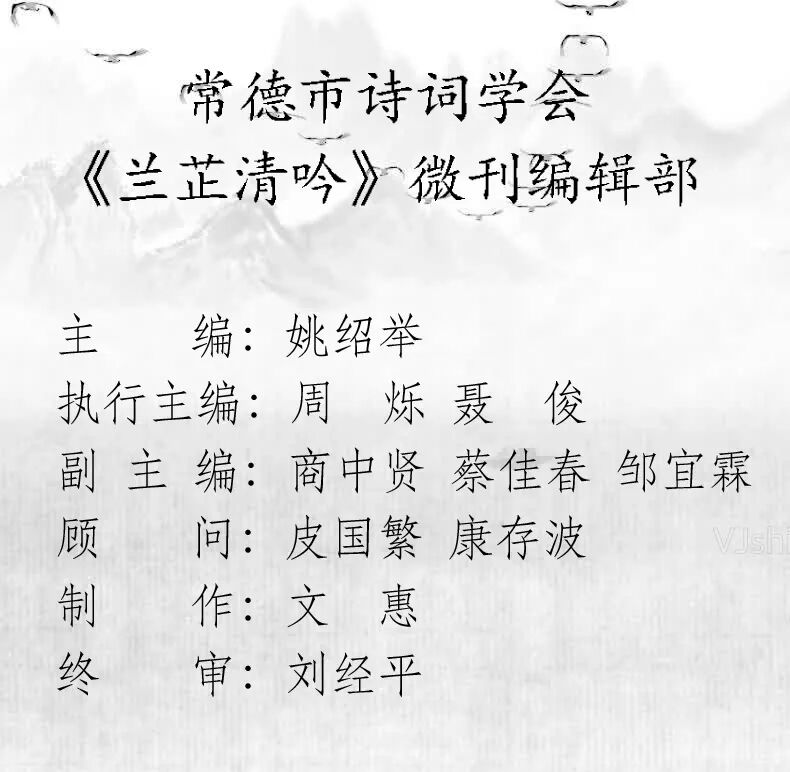 常德市诗词学会
《兰芷清吟》微刊编辑部
主　　编：姚绍举
执行主编：周　烁 聂　俊
副 主 编：商中贤 蔡佳春 邹宜霖
顾　　问：皮国繁 康存波
VJshi
制　　作：文　惠
终　　审：刘经平